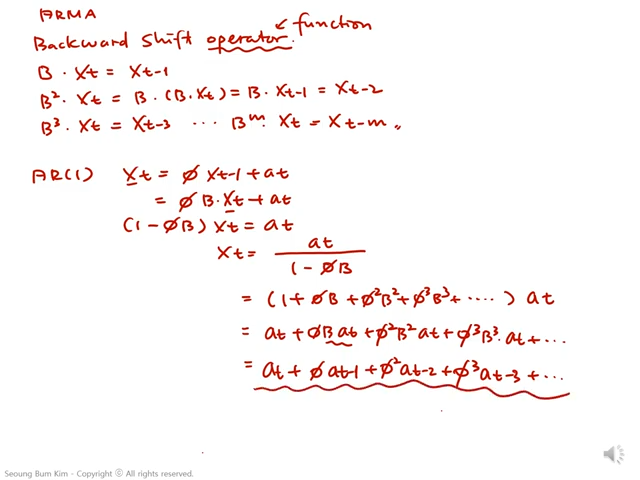 ARMA
Backward shift operator. ↙ function
B · Xt = Xt-1
B² · Xt = B · (B · Xt) = B · Xt-1 = Xt-2
B³ · Xt = Xt-3 ... Bᵐ · Xt = Xt-m 〃
AR(1) Xt = ∅ Xt-1 + at
= ∅ B · Xt + at
(1 - ∅B) Xt = at
Xt = at / 1 - ∅B
= (1 + ∅B + ∅²B² + ∅³B³ + ....) at
= at + ∅B at + ∅²B² at + ∅³B³ · at + ...
= at + ∅ at-1 + ∅² at-2 + ∅³ at-3 + ...
Seoung Bum Kim - Copyright ⓒ All rights reserved.